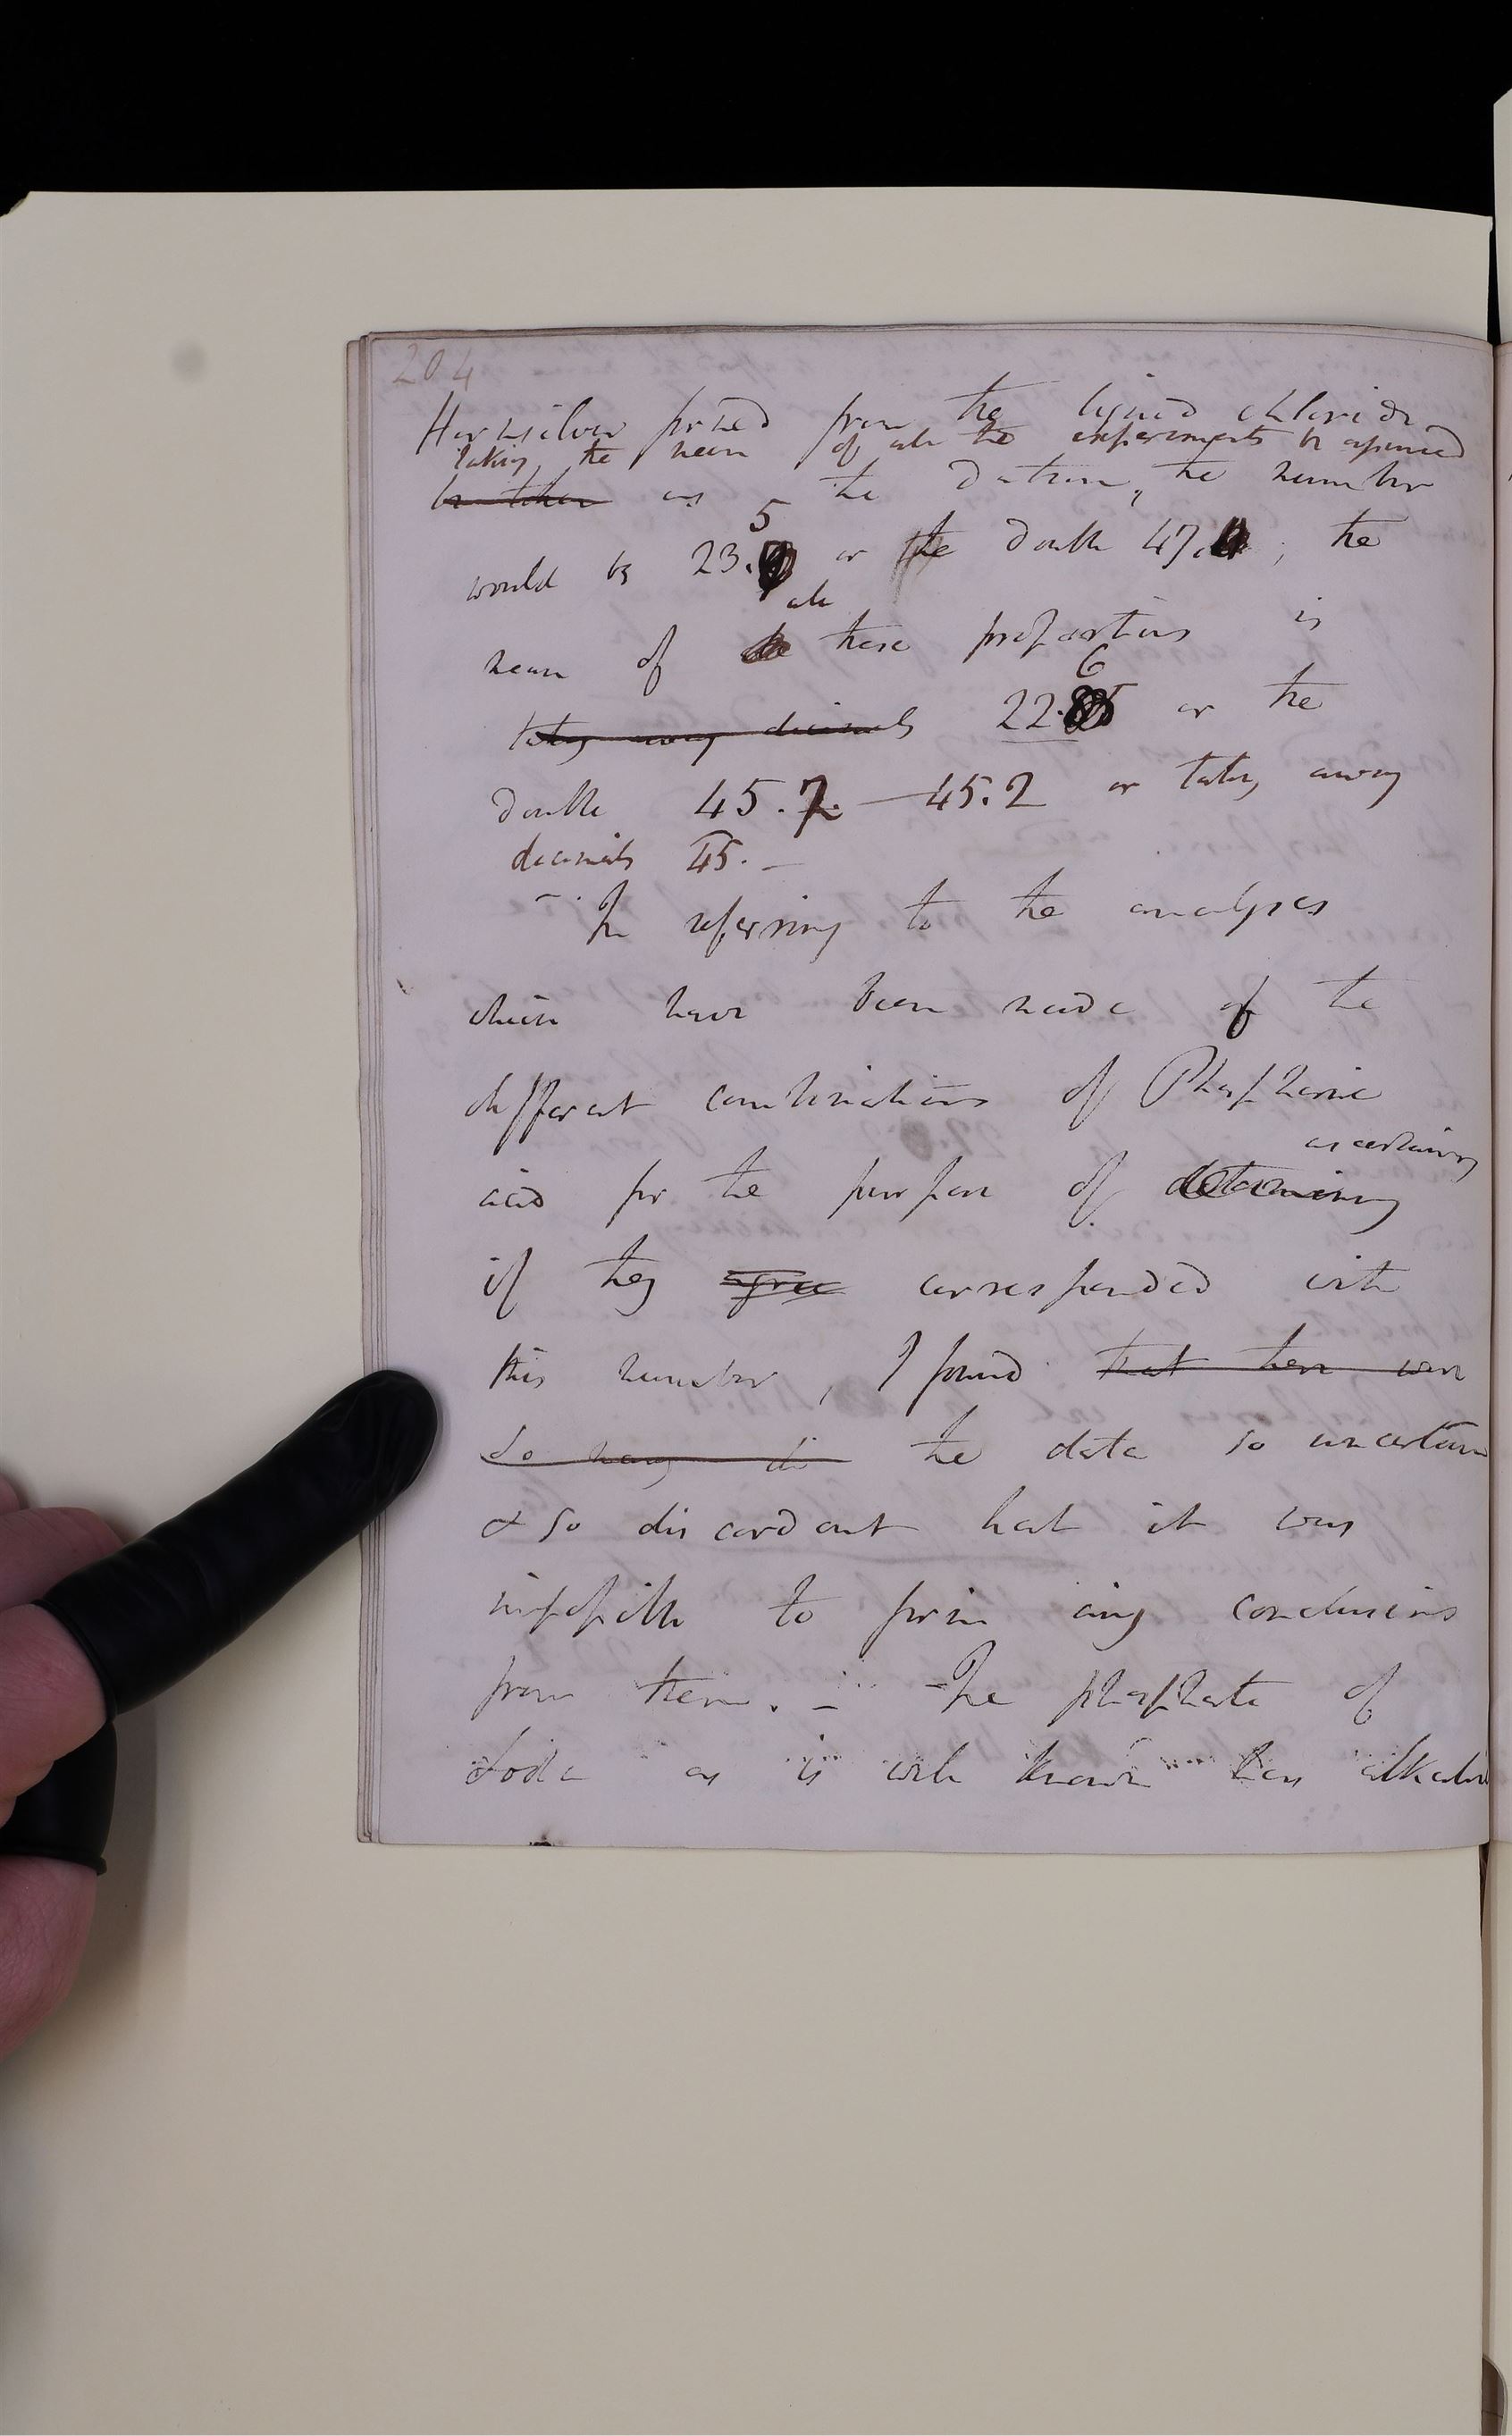 204
Hornsilver formed from the liquid chloride
taking the mean of all the experiments be assumed
be taken as the datum, the number
5
would be 23. or the double 47. ; the
all
mean of these proportions is
6
taking away decimals 22. or the
double 45.7. — 45.2 or taking away
decimals 45. —
In referring to the analyses
which have been made of the
different combinations of Phosphoric
ascertaining
acid for the purpose of determining
if they agree corresponded with
this number, I found that there were
so many di the data so uncertain
& so discordant that it was
impossible to form any conclusions
from them. – The phosphate of
Soda as is well known has alkaline